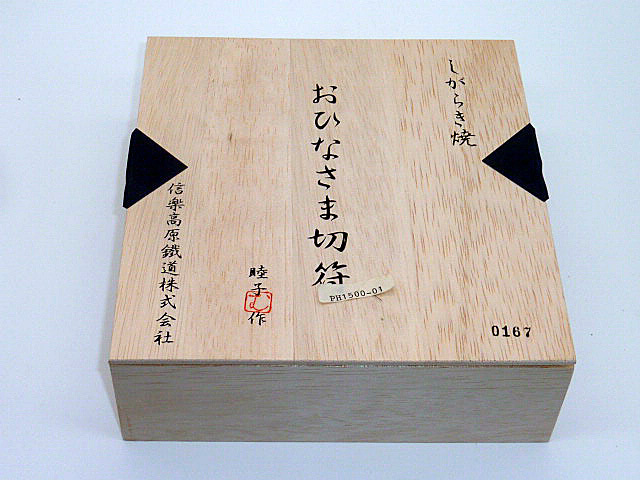 しがらき焼
おひなさま切符
PH1500-01
睦子作
信楽高原鐵道株式会社
0167